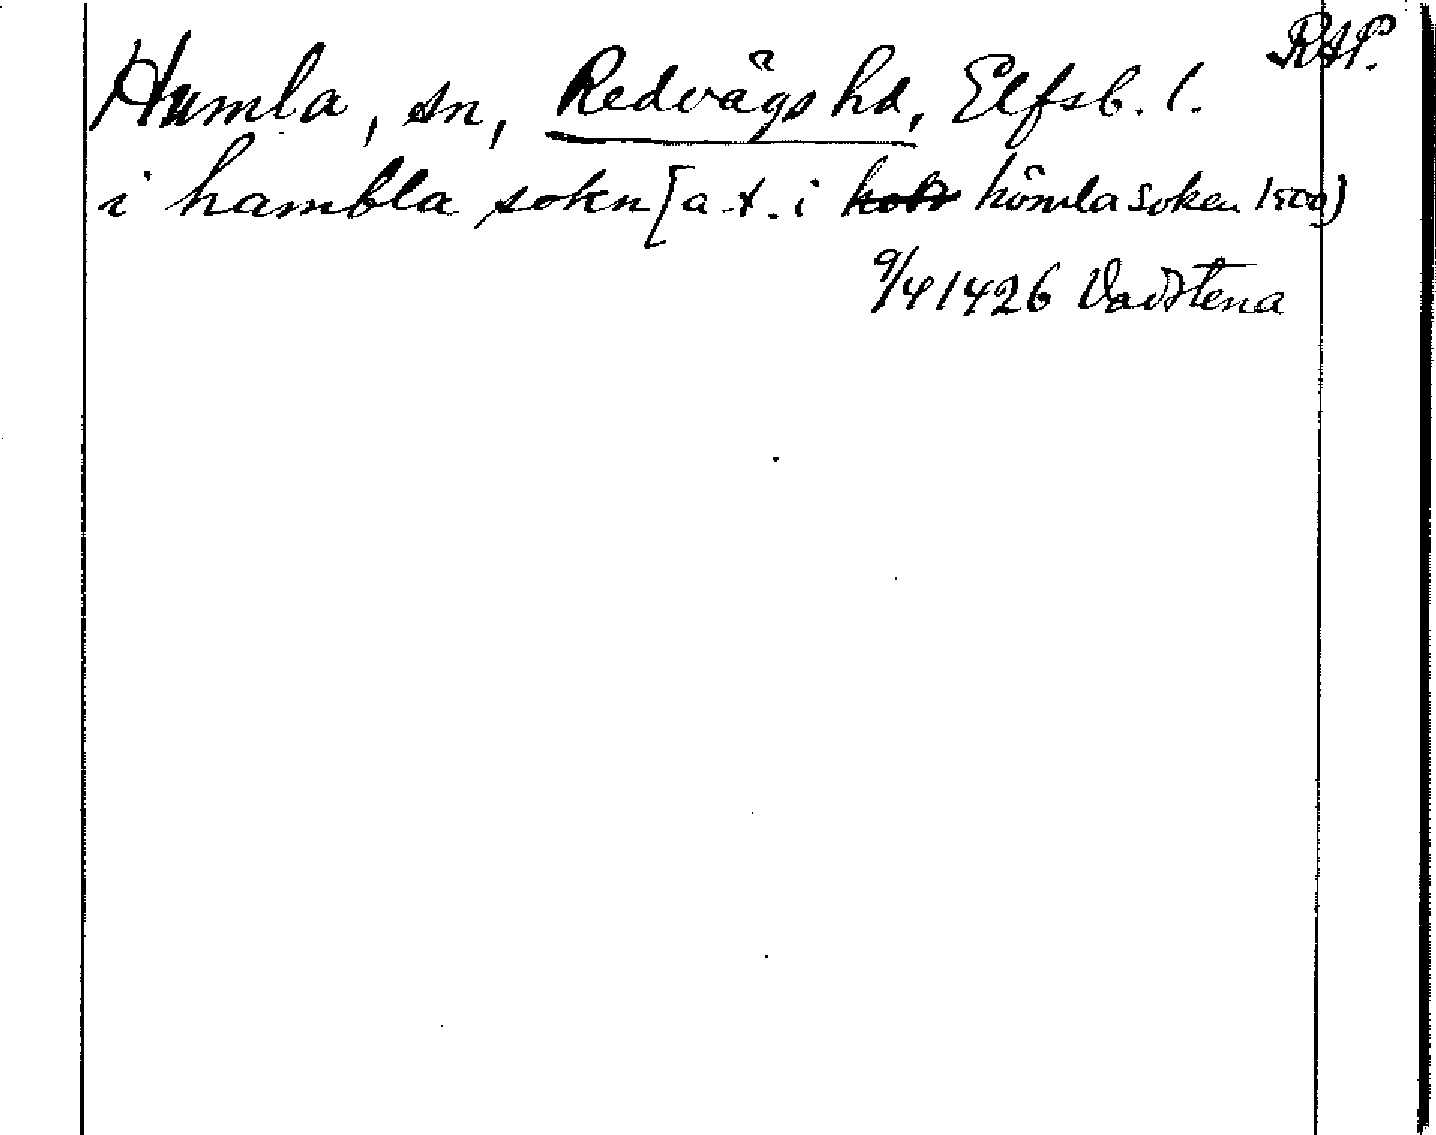 RAP.
Humla, sn, Redvägs hd, Elfsb. l.
i hambla sokn [a-t. i hömla soken 1500)
9/4 1426 Vadstena